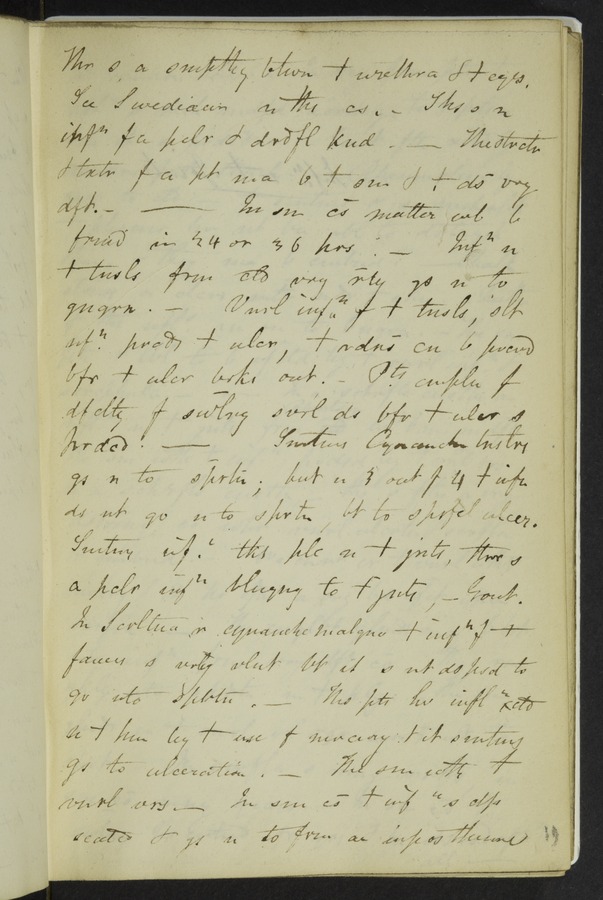 Thr s a smpthy btwn + urethra & + eyes.
See Swediaur n ths cs. - Ths s n
inf^n f a pclr & drdfl knd. — The strctr
& txtr f a prt ma b + sm & + ds vry
dft. — In sm cs matter wl b
frmd in 24 or 36 hrs. — Inf^n n
+ tnsls frm cld vry rly gs n to
gngrn. — Vnrl inf^n f + tnsls, slt
inf^n prcds + ulcr, + rdns cn b prcvd
bfr + ulcr brks out. - Pts cmpln f
dfclty f swlng svrl ds bfr + ulcr s
prdcd. — Smtms Cynanche tnslrs
gs n to sprtn; but n 3 out f 4 + infn
ds nt go n to sprtn, bt to sprfcl ulcer.
Smtms inf^n tks plc n + jnts, thre s
a pclr inf^n blngng to + jnts, - Gout.
In Scrltna r cynanche maligna + inf^n f +
fauces s vry vlnt bt it s nt dspsd to
go nto spprtn. — Ths pts hv infl^n xctd
n + hm by + use f mercury & it smtms
gs to ulceration. — The sm wth +
vnrl vrs. — In sm cs + inf^n s dp
seated & gs n to frm an imposthume
19